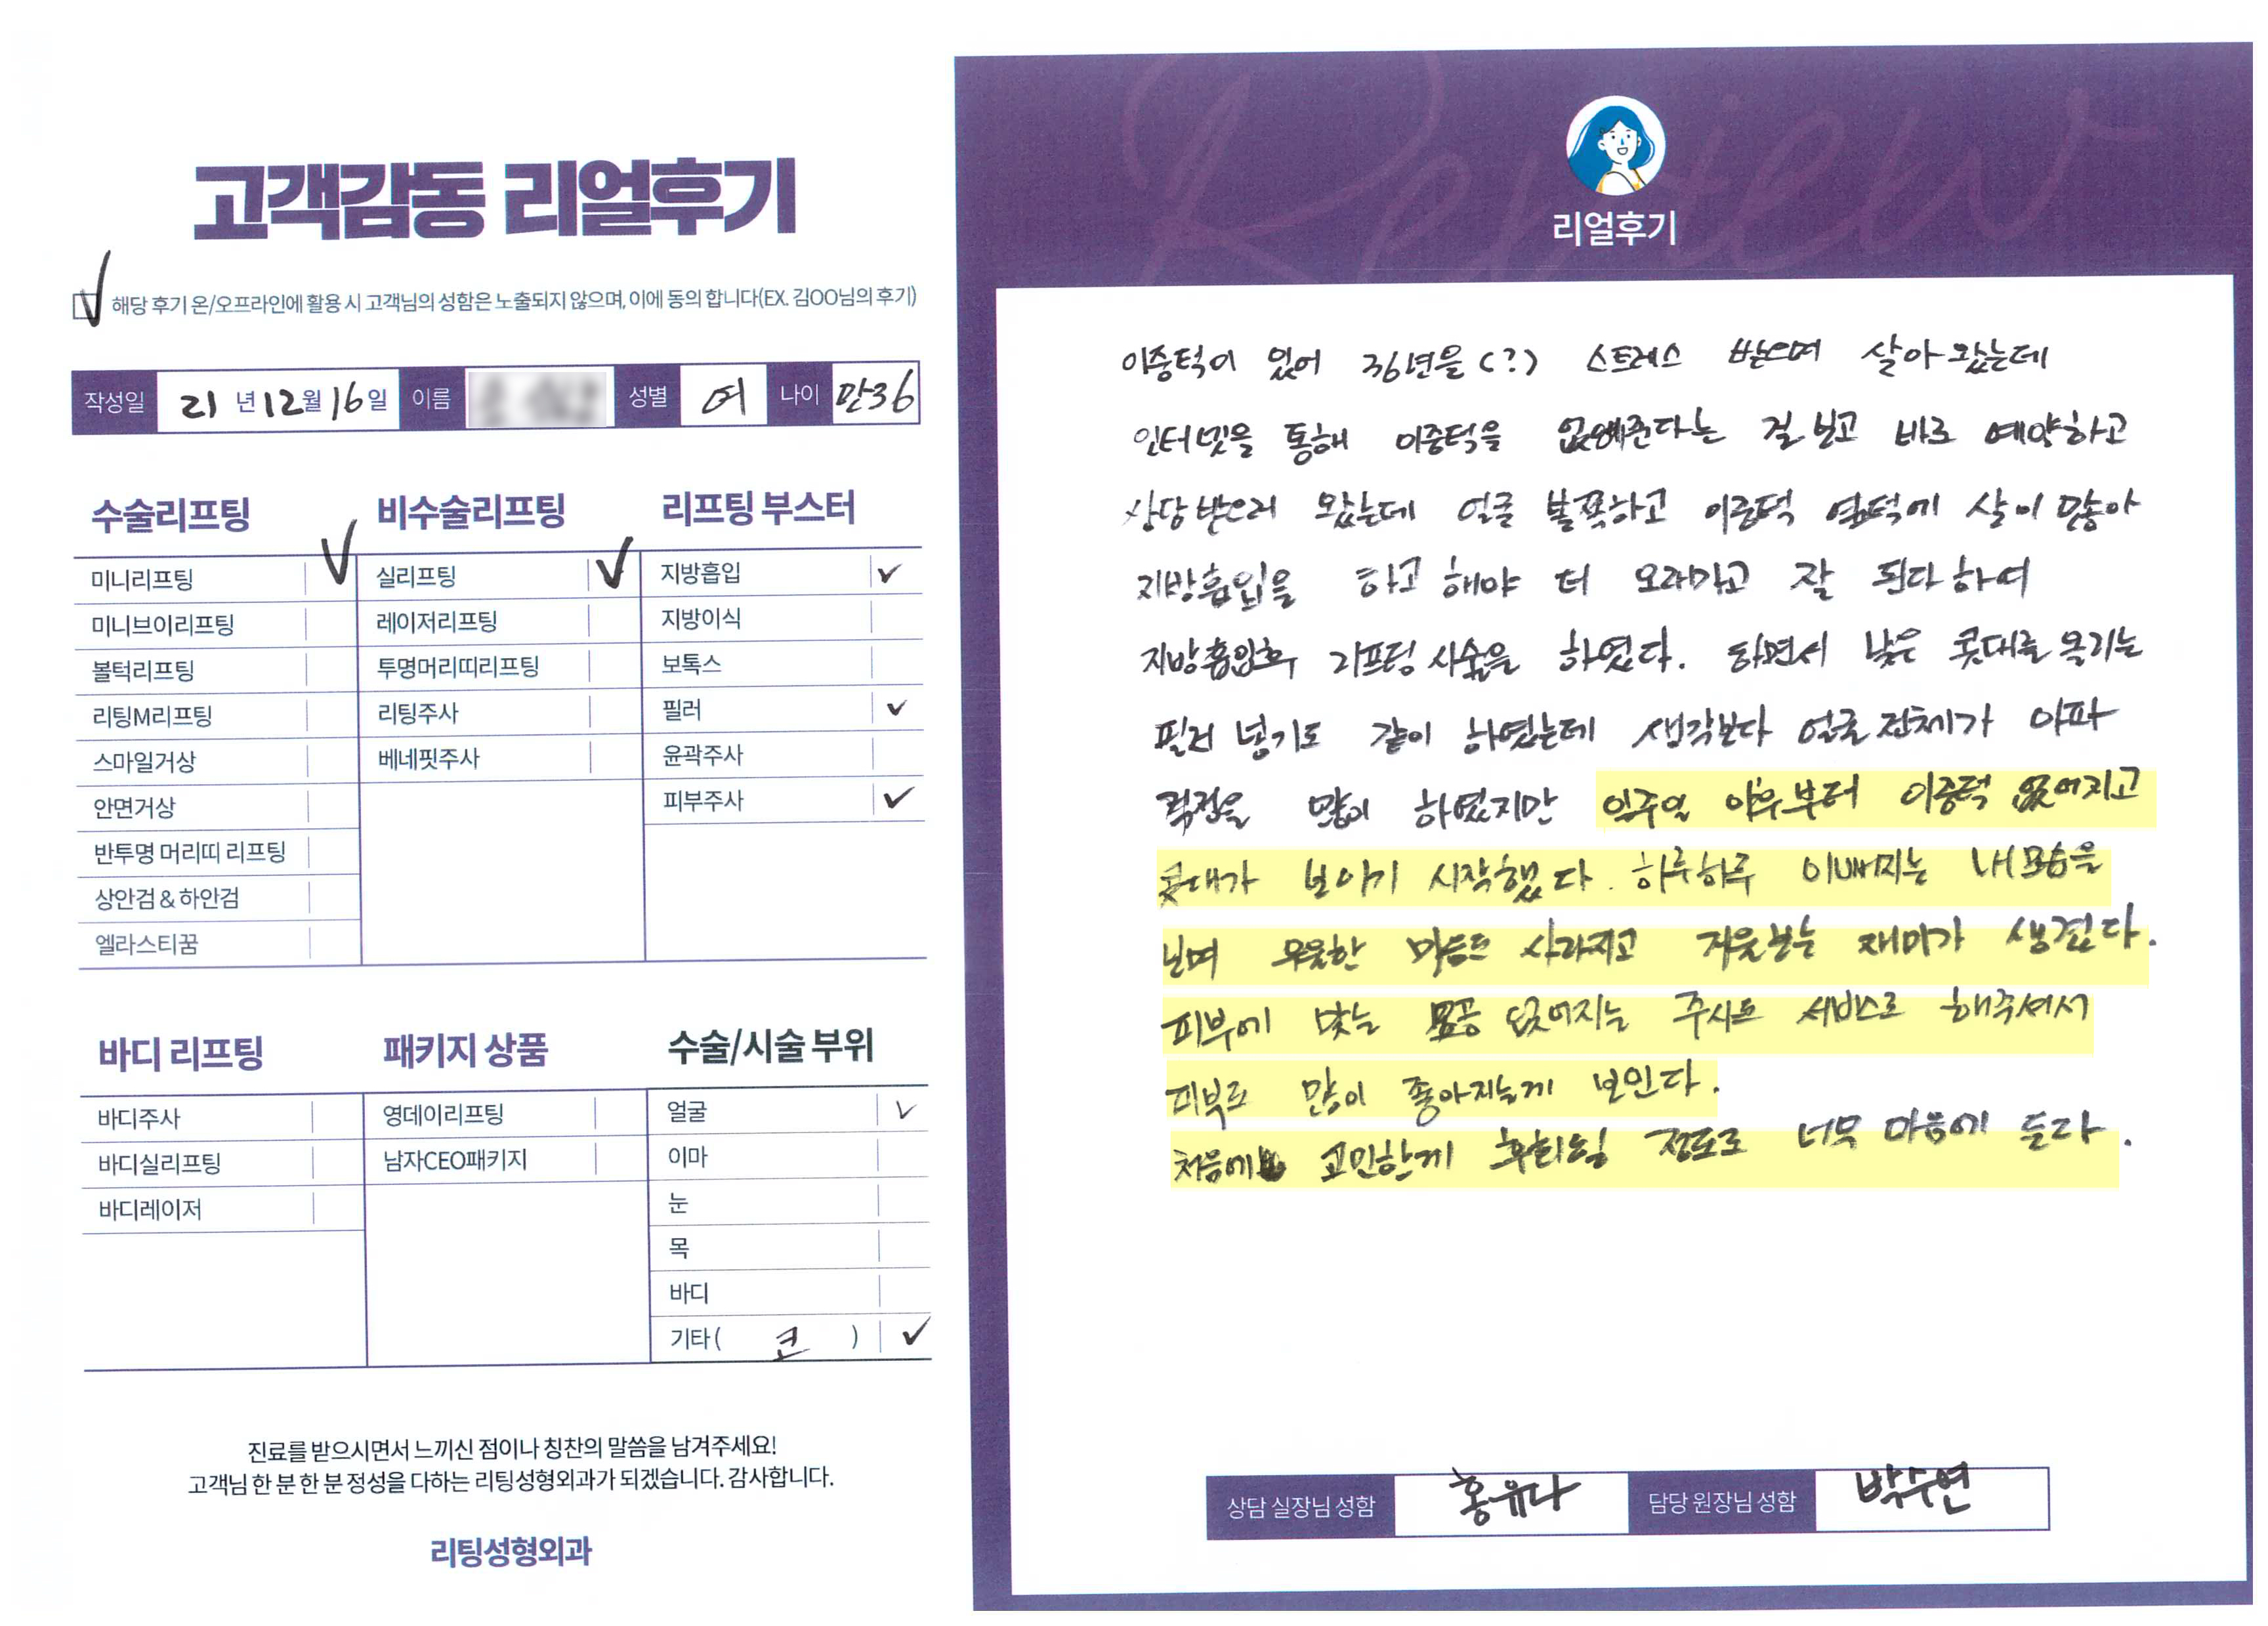 고객감동 리얼후기
해당 후기 온/오프라인에 활용 시 고객님의 성함은 노출되지 않으며, 이에 동의 합니다(EX. 김OO님의 후기)
작성일 21 년 12 월 16 일 이름 성별 여 나이 만36
수술리프팅
미니리프팅
미니브이리프팅
볼턱리프팅
리팅M리프팅
스마일거상
안면거상
반투명 머리띠 리프팅
상안검 & 하안검
엘라스티꿈
비수술리프팅
실리프팅
레이저리프팅
투명머리띠리프팅
리팅주사
베네핏주사
리프팅 부스터
지방흡입
지방이식
보톡스
필러
윤곽주사
피부주사
바디 리프팅
바디주사
바디실리프팅
바디레이저
패키지 상품
영데이리프팅
남자CEO패키지
수술/시술 부위
얼굴
이마
눈
목
바디
기타 ( 코 )
진료를 받으시면서 느끼신 점이나 칭찬의 말씀을 남겨주세요!
고객님 한 분 한 분 정성을 다하는 리팅성형외과가 되겠습니다. 감사합니다.
리팅성형외과
Review
리얼후기
이중턱이 있어 36년을(?) 스트레스 받으며 살아왔는데
인터넷을 통해 이중턱을 없애준다는 걸 보고 바로 예약하고
상담받으러 왔는데 얼굴 볼쪽하고 이중턱 옆턱에 살이 많아
지방흡입을 하고 해야 더 오래가고 잘 된다 하여
지방흡입후 리프팅 시술을 하였다. 하면서 낮은 콧대를 옮기는
필러 넣기도 같이 하였는데 생각보다 얼굴전체가 아파
걱정을 많이 하였지만 일주일 이후부터 이중턱 없어지고
콧대가 보이기 시작했다. 하루하루 이뻐지는 내모습을
보며 우울한 마음도 사라지고 거울보는 재미가 생겼다.
피부에 맞는 모공 없어지는 주사도 서비스로 해주셔서
피부도 많이 좋아지는게 보인다.
처음에 고민한게 후회될 정도로 너무 마음에 든다.
상담 실장님 성함 홍유나 담당 원장님 성함 박수연